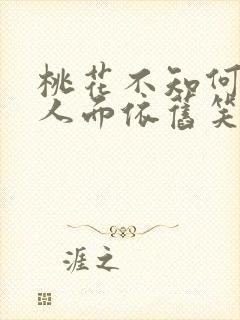 桃花不知何
人而依舊笑
涯之